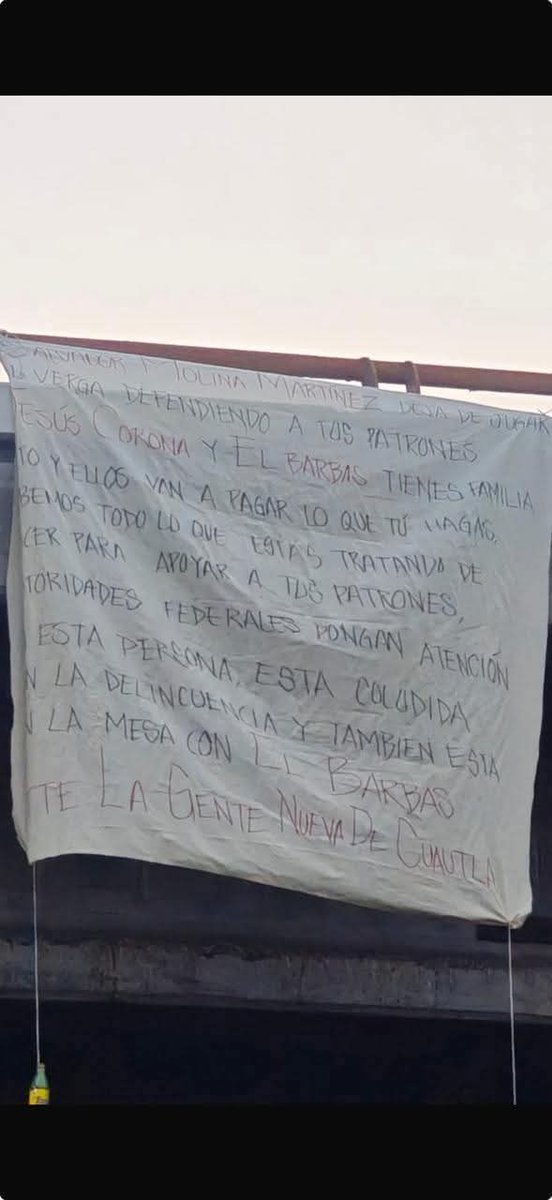 SALVADOR MOLINA MARTINEZ DEJA DE JUGAR
VERGA DEFENDIENDO A TUS PATRONES
ESÚS CORONA Y EL BARBAS TIENES FAMILIA
TO Y ELLOS VAN A PAGAR LO QUE TÚ HAGAS.
BEMOS TODO LO QUE ESTAS TRATANDO DE
CER PARA APOYAR A TUS PATRONES,
TORIDADES FEDERALES PONGAN ATENCIÓN
ESTA PERSONA, ESTA COLUDIDA
N LA DELINCUENCIA Y TAMBIEN ESTA
N LA MESA CON EL BARBAS
TE LA GENTE NUEVA DE CUAUTLA